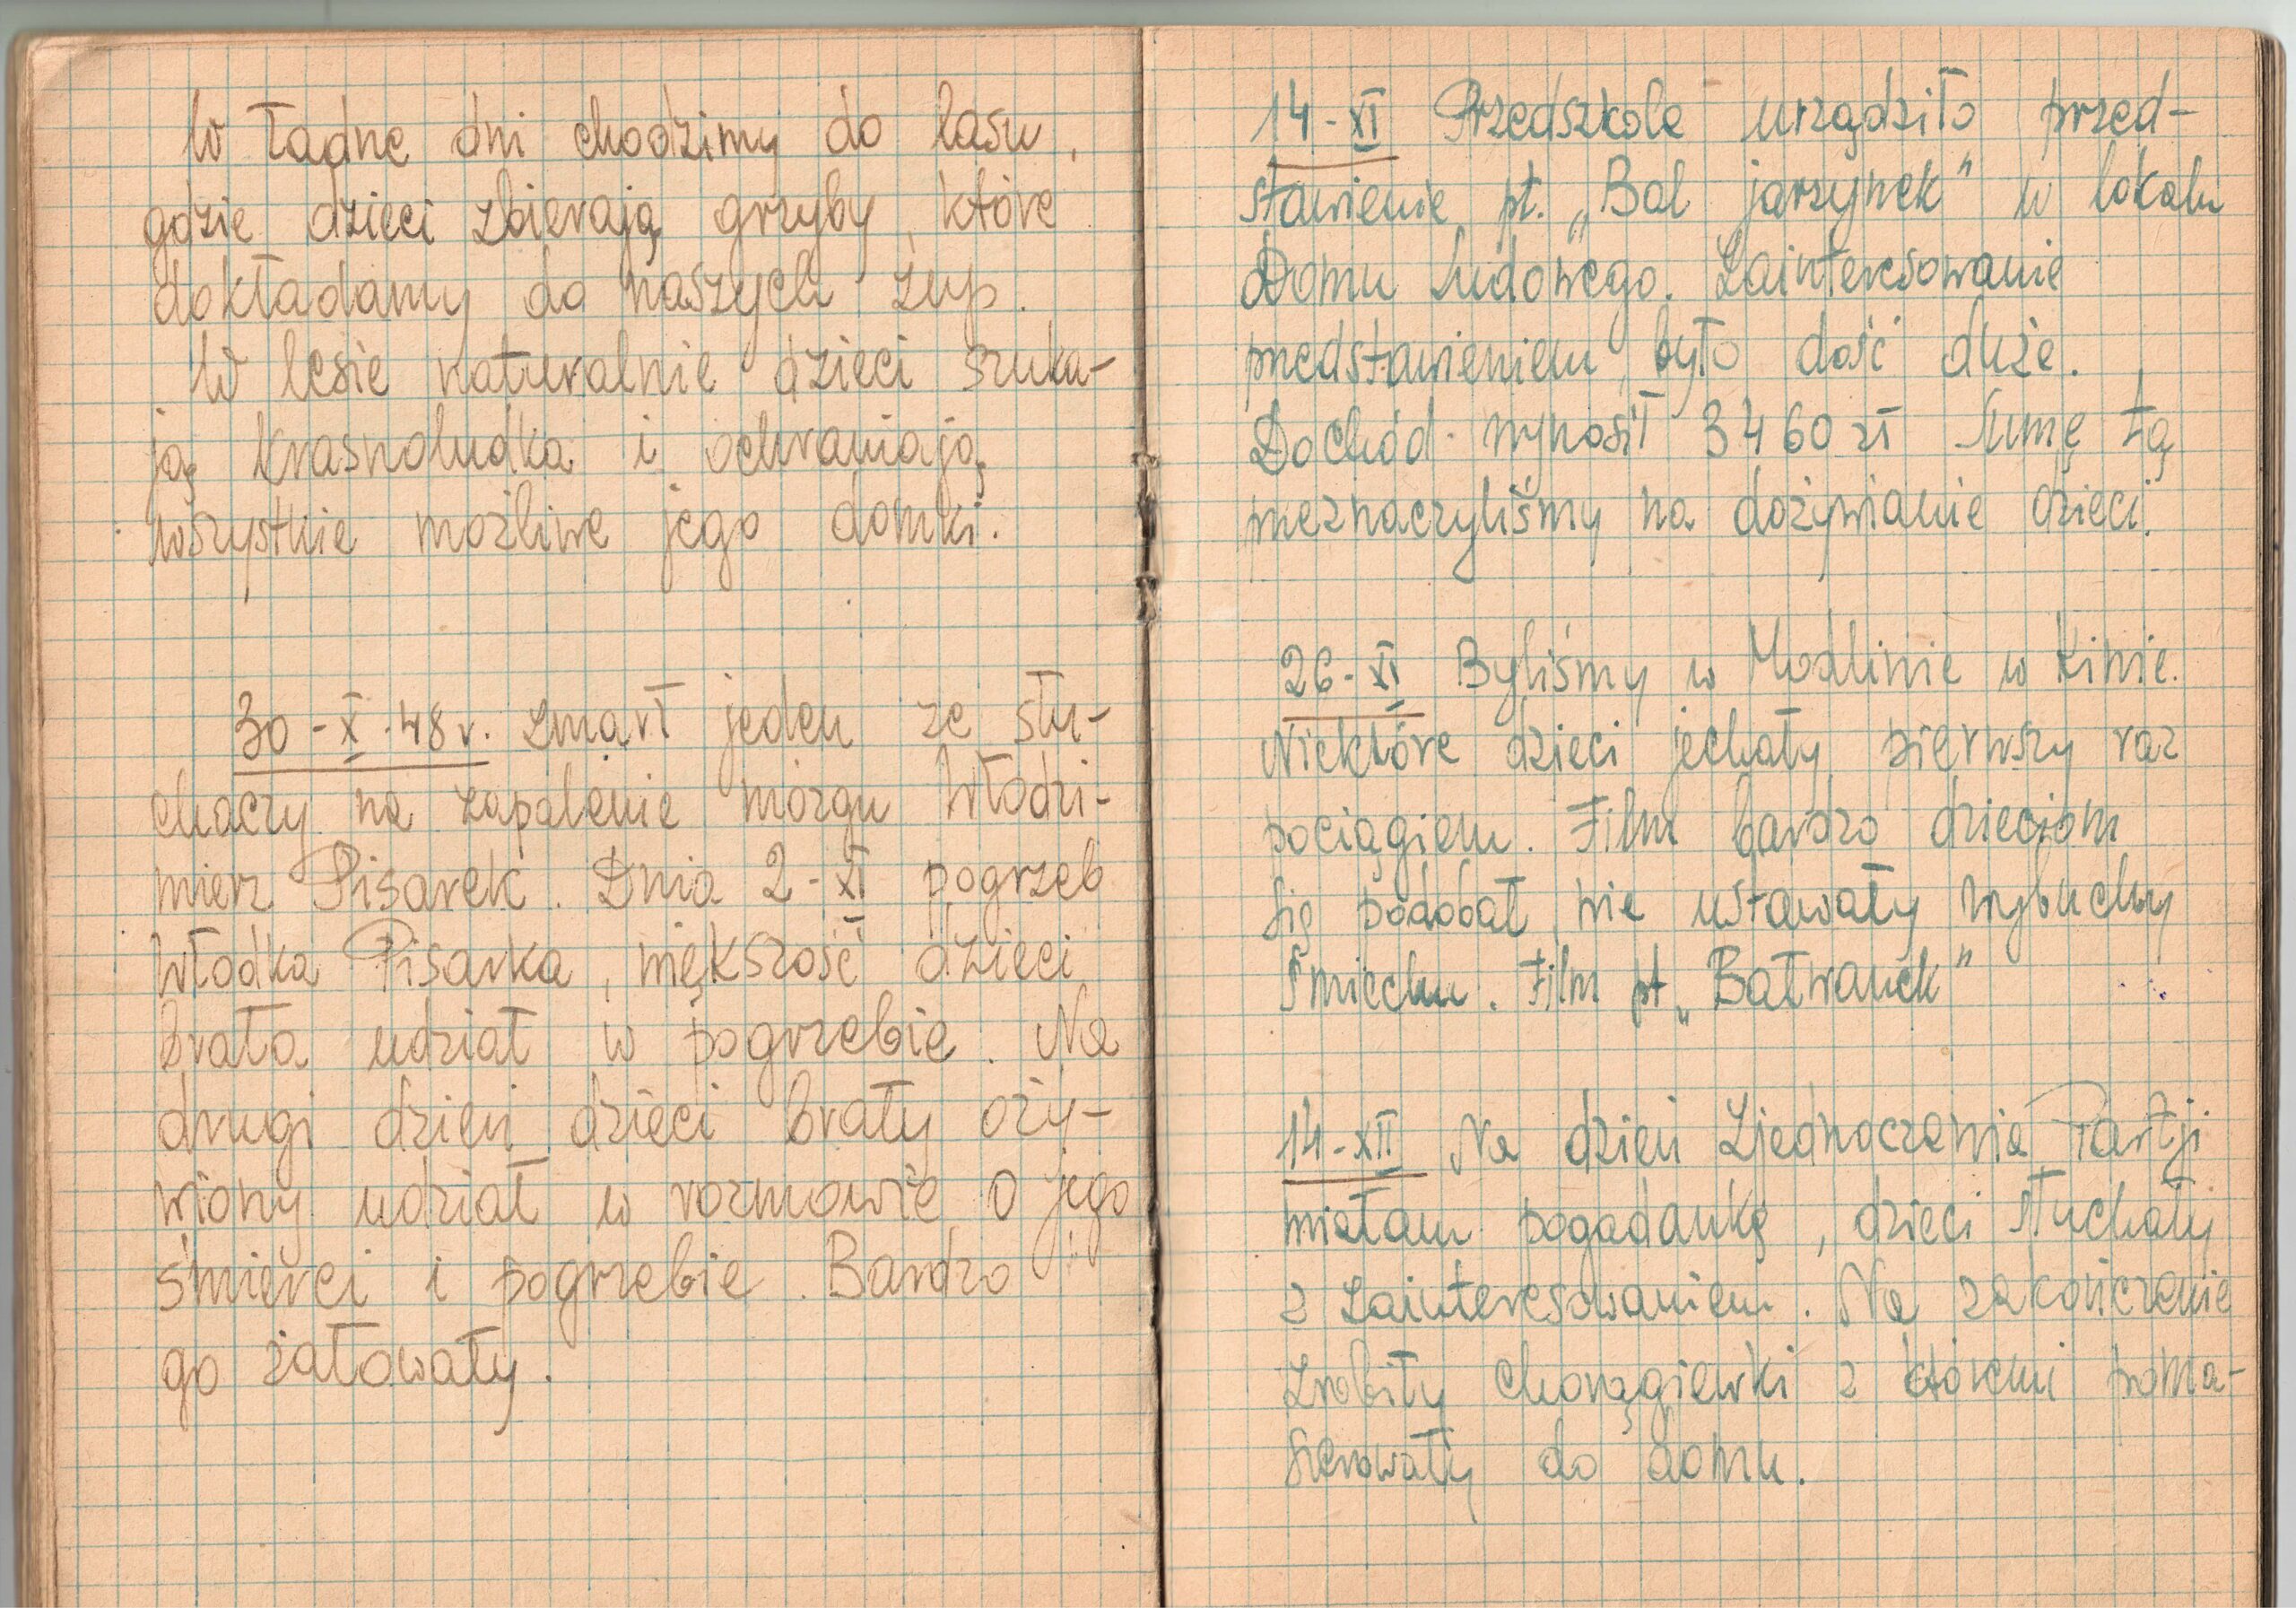 W ładne dni chodzimy do lasu,
gdzie dzieci zbierają grzyby, które
dokładamy do naszych zup.
W lesie naturalnie dzieci szuka-
ją Krasnoludka i ochraniają
wszystkie możliwe jego domki.
30-X.48r. Zmarł jeden ze słu-
chaczy na zapalenie mózgu Włodzi-
mierz Pisarek. Dnia 2-XI pogrzeb
Włodka Pisarka, większość dzieci
brała udział w pogrzebie. Na
drugi dzień dzieci brały oży-
wiony udział w rozmowie o jego
śmierci i pogrzebie. Bardzo
go żałowały.
14-XI Przedszkole urządziło przed-
stawienie pt. „Bal jarzynek" w lokalu
Domu Ludowego. Zainteresowanie
przedstawieniem było dość duże.
Dochód wynosił 3460 zł Sumę tą
przeznaczyliśmy na dożywianie dzieci.
26-XI Byliśmy w Modlinie w Kinie.
Niektóre dzieci jechały pierwszy raz
pociągiem. Film bardzo dzieciom
się podobał, nie ustawały wybuchy
śmiechu. Film pt „Bałwanek"
14-XII Na dzień Zjednoczenia Partji
miałam pogadankę, dzieci słuchały
z zainteresowaniem. Na zakończenie
zrobiły chorągiewki z któremi poma-
szerowały do domu.